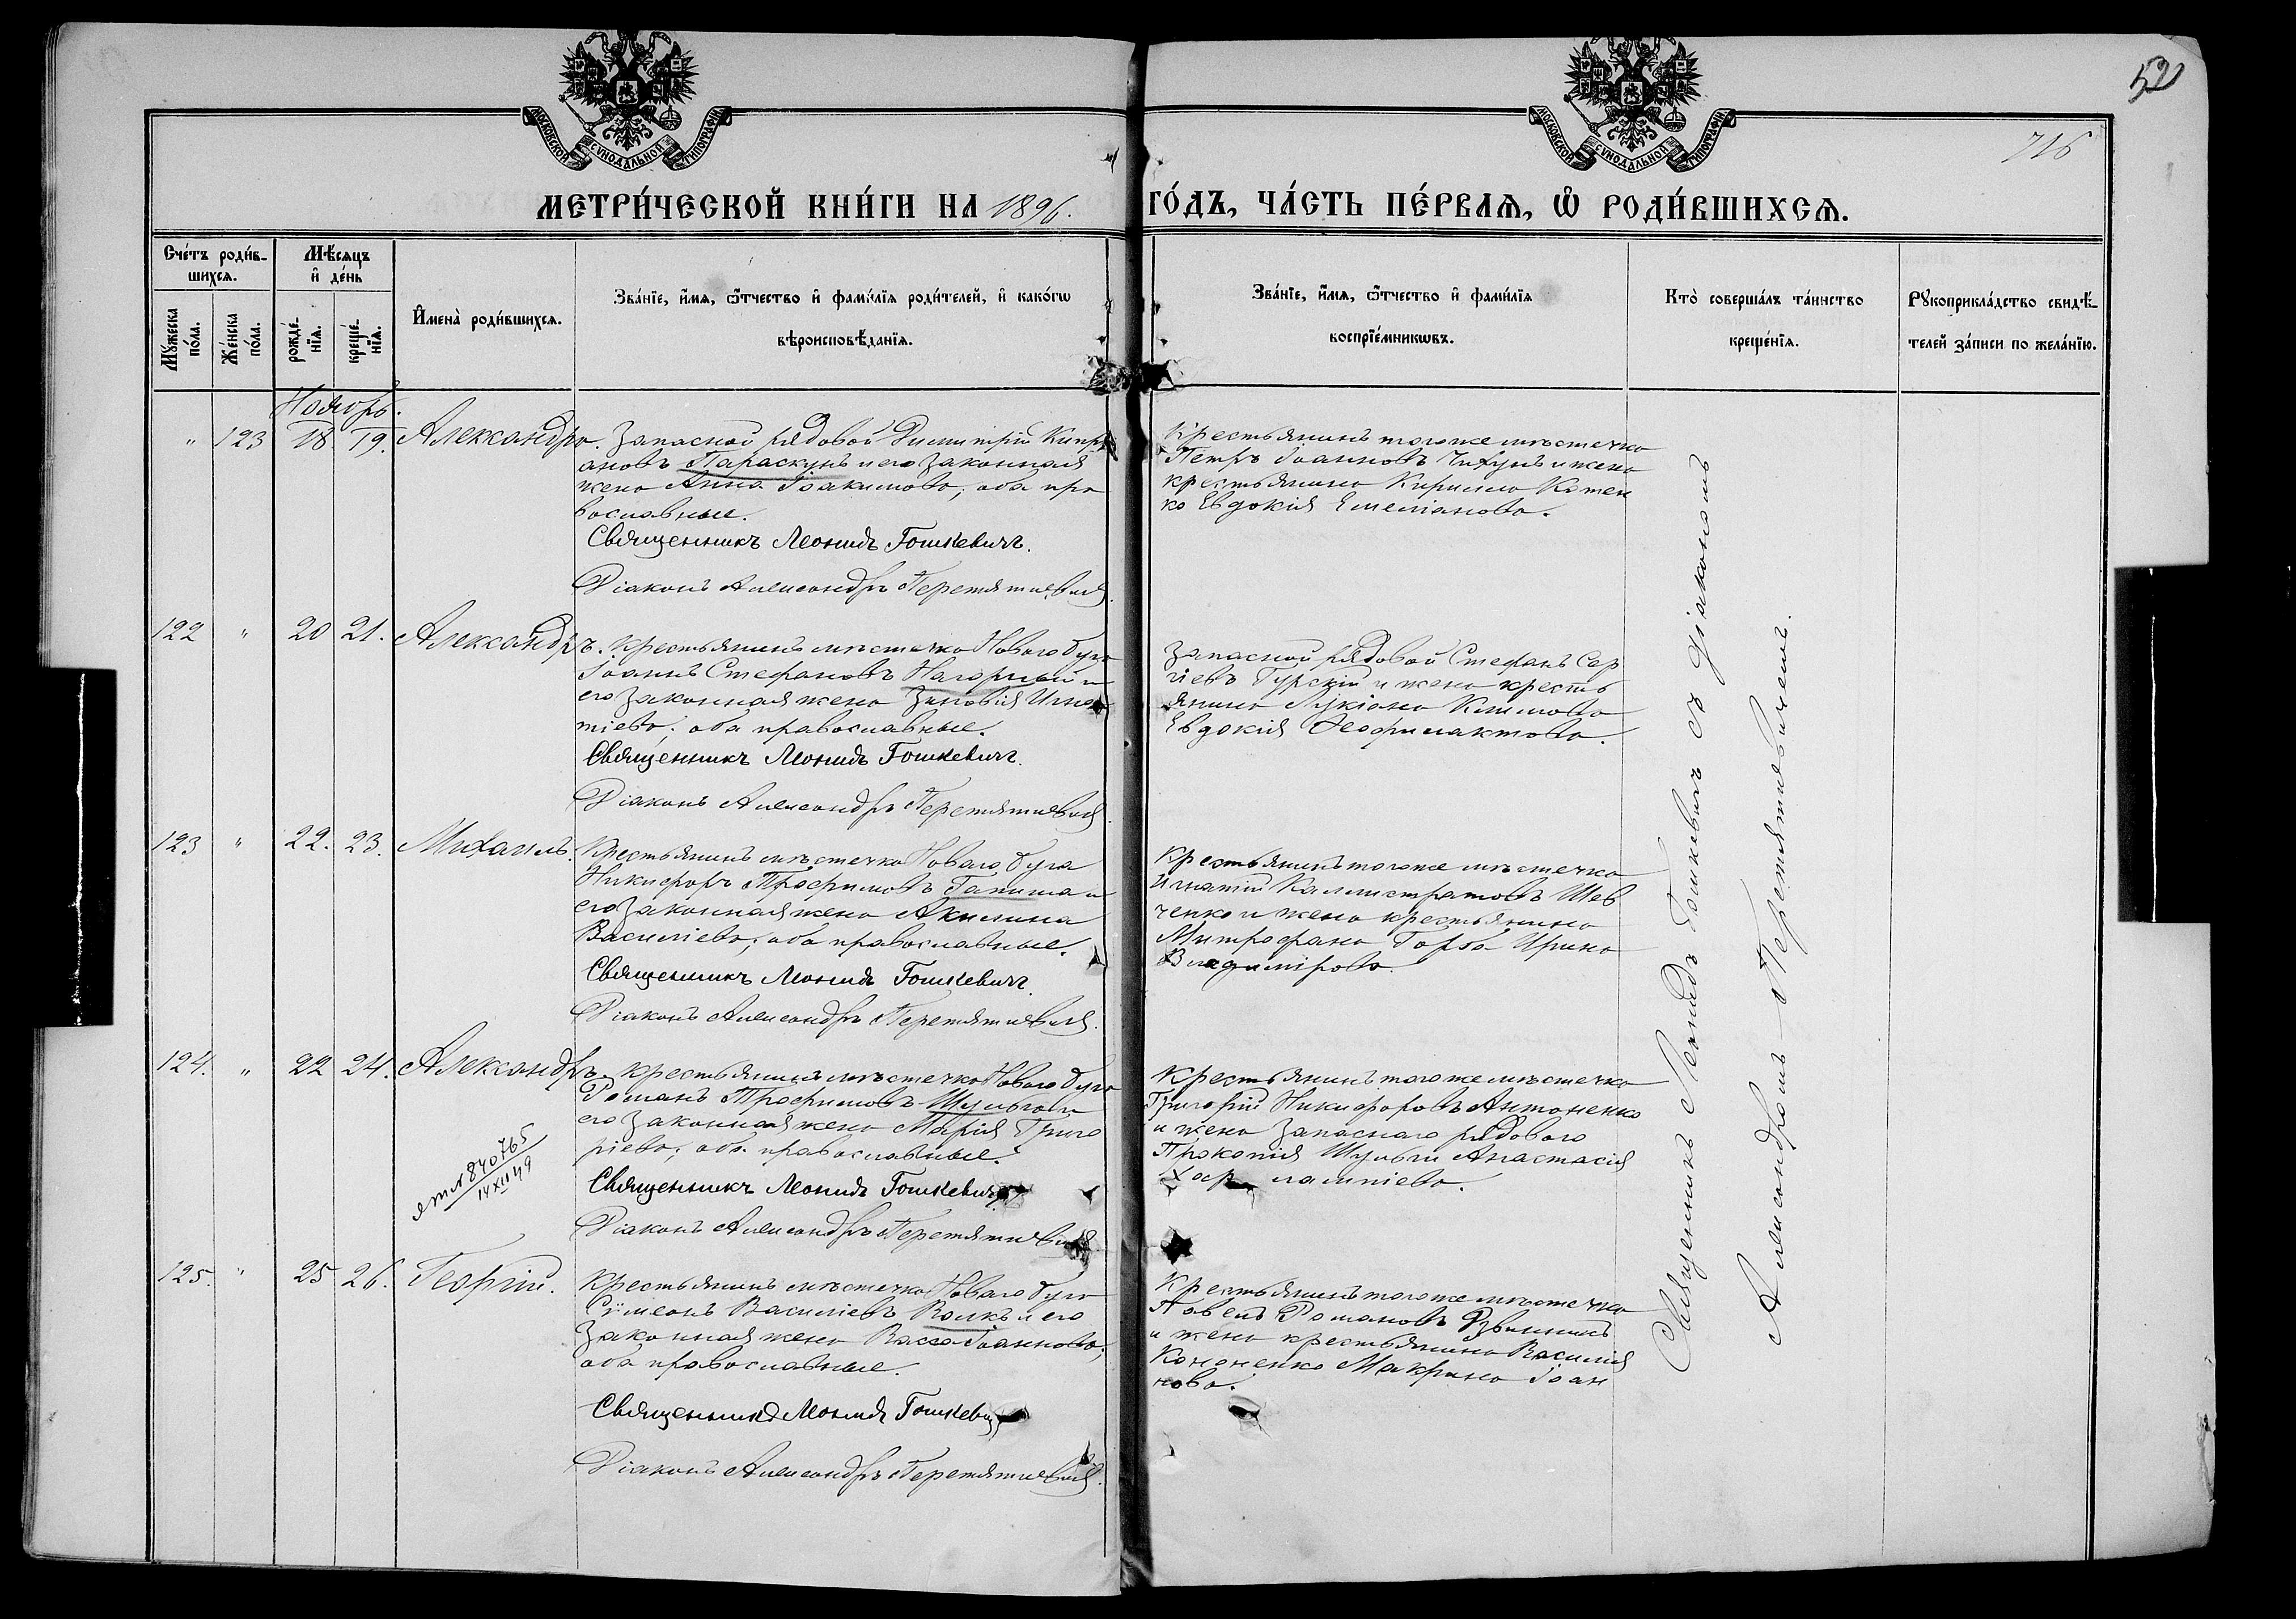 52
716
МОСКОВСКОЙ СѴНОДАЛЬНОЙ ТИПОГРАФІИ
МОСКОВСКОЙ СѴНОДАЛЬНОЙ ТИПОГРАФІИ
МЕТРИ́ЧЕСКОЙ КНИ́ГИ НА 1896. ГО́ДЪ, ЧА́СТЬ ПЕ́РВАѦ, Ѡ҆ РОДИ́ВШИХСѦ.
Сче́тъ роди́в-
шихсѧ.
Мꙋ́жеска по́ла.
Же́нска по́ла.
Мѣ́сѧцъ
и҆ де́нь
рожде́-
нїѧ.
креще́-
нїѧ.
И҆мена̀ роди́вшихсѧ.
Зва́нїе, и҆́мѧ, ѻ҆́тчество и҆ фами́лїѧ роди́телей, и҆ како́гѡ
вѣроисповѣ́данїѧ.
Зва́нїе, и҆́мѧ, ѻ҆́тчество и҆ фами́лїѧ
воспрїе́мникѡвъ.
Кто̀ соверша́лъ та́инство
креще́нїѧ.
Рꙋкоприкла́дство свидѣ́-
телей за́писи по жела́нїю.
Ноябрь.
" 123 18. 19. Александра. Запасной рядовой Димитрій Кипрі
ановъ Параскунъ и его законная
жена Анна Іоакимова, оба пра
вославные.
Священникъ Леонидъ Гошкевичъ.
Діаконъ Александръ Перетятковичъ.
Крестьянинъ того же мѣстечка
Петръ Іоанновъ Чихунъ и жена
крестьянина Кирилла Котен
ко Евдокія Емеліанова.
122 " 20 21. Александръ. Крестьянинъ мѣстечка Новаго Буга
Іоаннъ Стефановъ Нагорный и
его законная жена Зиновія Игна
тіева; оба православные.
Священникъ Леонидъ Гошкевичъ.
Діаконъ Александръ Перетятковичъ.
Запасной рядовой Стефанъ Сер
гіевъ Гурскій и жена кресть
янина Лукіана Климова
Евдокія Ѳеофилактова.
123 " 22. 23. Михаилъ. Крестьянинъ мѣстечка Новаго Буга
Никифоръ Трофимовъ Гапиша и
его законная жена Акилина
Василіева; оба православные.
Священникъ Леонидъ Гошкевичъ.
Діаконъ Александръ Перетятковичъ.
Крестьянинъ того же мѣстечка
Игнатій Каллистратовъ Шев
ченко и жена крестьянина
Митрофана Горба Ирина
Владимірова.
124. " 22 24. Александръ. Крестьянинъ мѣстечка Новаго Буга
Романъ Трофимовъ Шульга и
его законная жена Марія Григо
ріева; оба православные.
Священникъ Леонидъ Гошкевичъ
Діаконъ Александръ Перетятковичъ.
ЯТ № 840765
14 XII 49
Крестьянинъ того же мѣстечка
Григорій Никифоровъ Антоненко
и жена запаснаго рядового
Прокопія Шульги Анастасія
Хар лампіева.
125. " 25 26. Георгій. Крестьянинъ мѣстечка Новаго Буга
Сѵмеонъ Василіевъ Волкъ и его
законная жена Васса Іоаннова;
оба православные.
Священникъ Леонидъ Гошкевичъ
Діаконъ Александръ Перетятковичъ.
Крестьянинъ того же мѣстечка
Павелъ Романовъ Дзвинникъ
и жена крестьянина Василія
Кононенко Макрина Іоан
нова.
Священникъ Леонидъ Гошкевичъ съ діакономъ
Александромъ Перетятковичемъ.